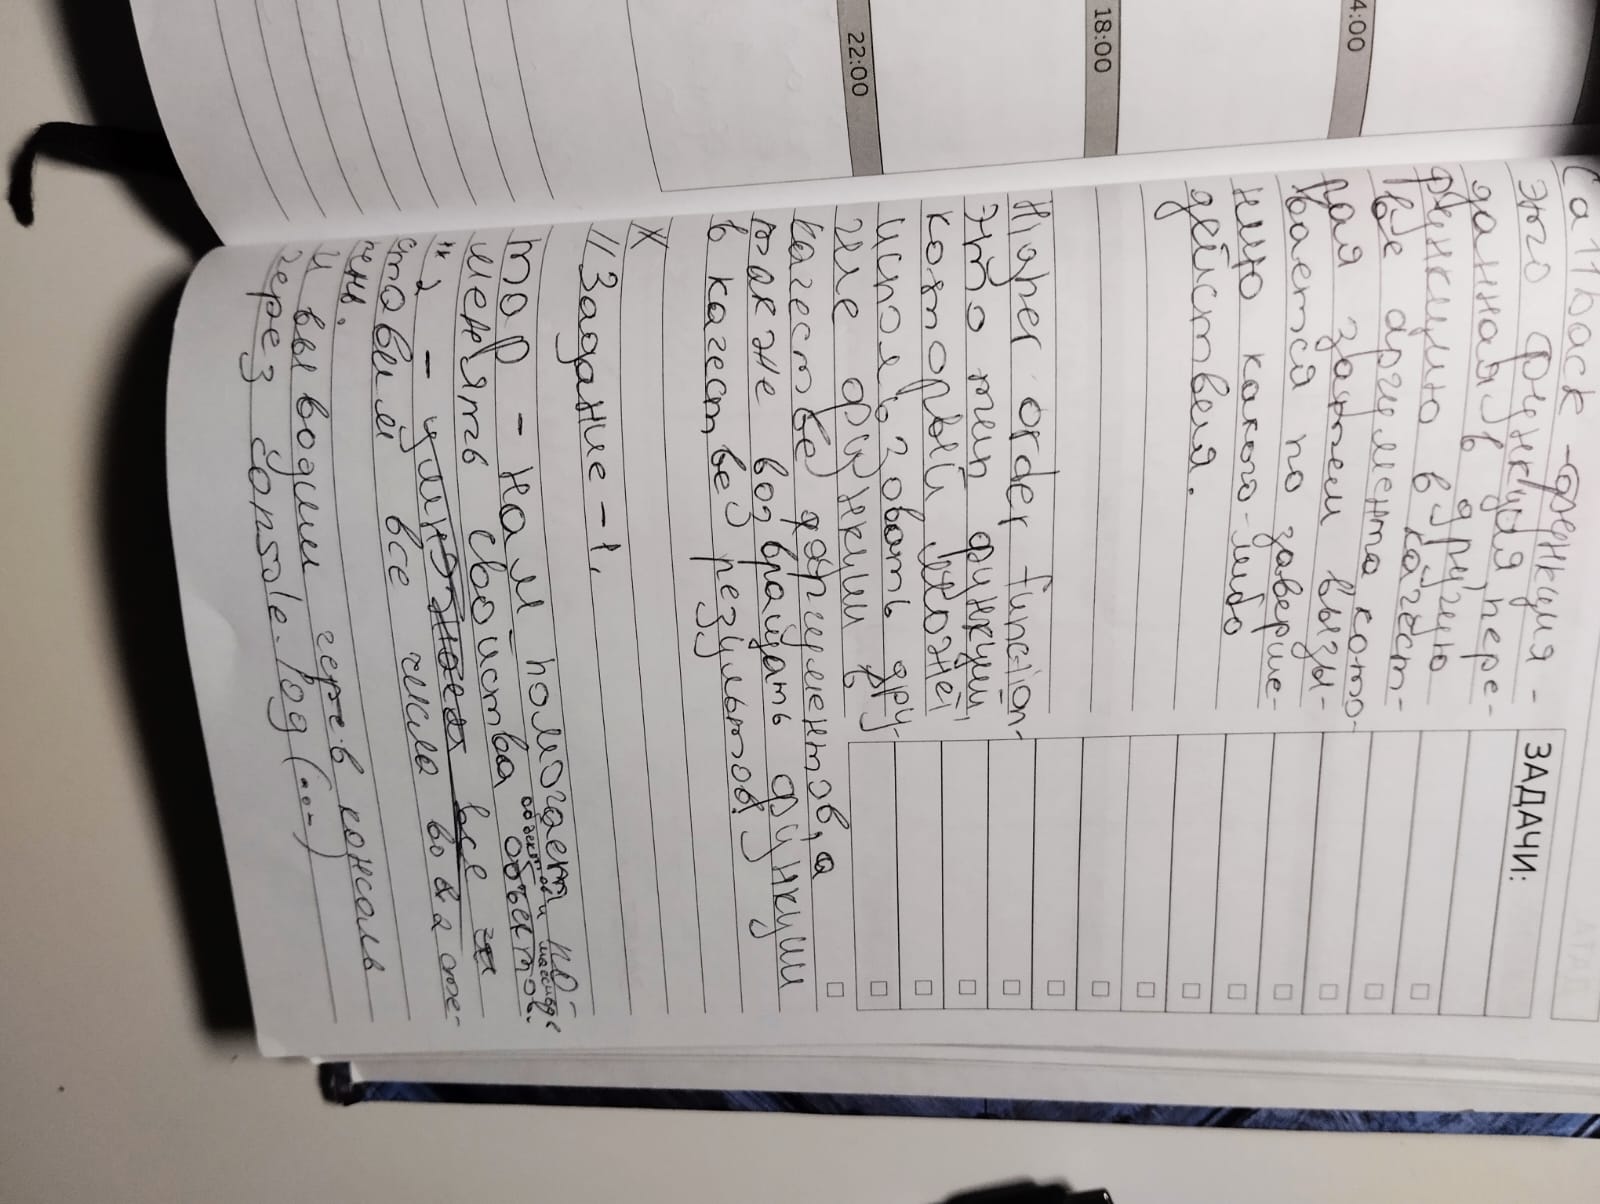 Callback - функция -
это функция, пере-
данная в другую
функцию в качест-
ве аргумента, кото-
рая затем вызы-
вается по заверше-
нию какого-либо
действия.
ЗАДАЧИ:
4:00
18:00
22:00
Higher order function-
это тип функций,
который может
использовать дру-
гие функции в
качестве аргументов, а
так же возвращать функции
в качестве результов.
//Задание - 1.
map - нам помогает по-
менять свойства объектов и массивов объектов.
**2 - умножает все
ставим все числа во 2 сте-
пень.
И выводим в консоль
через console.log(...)